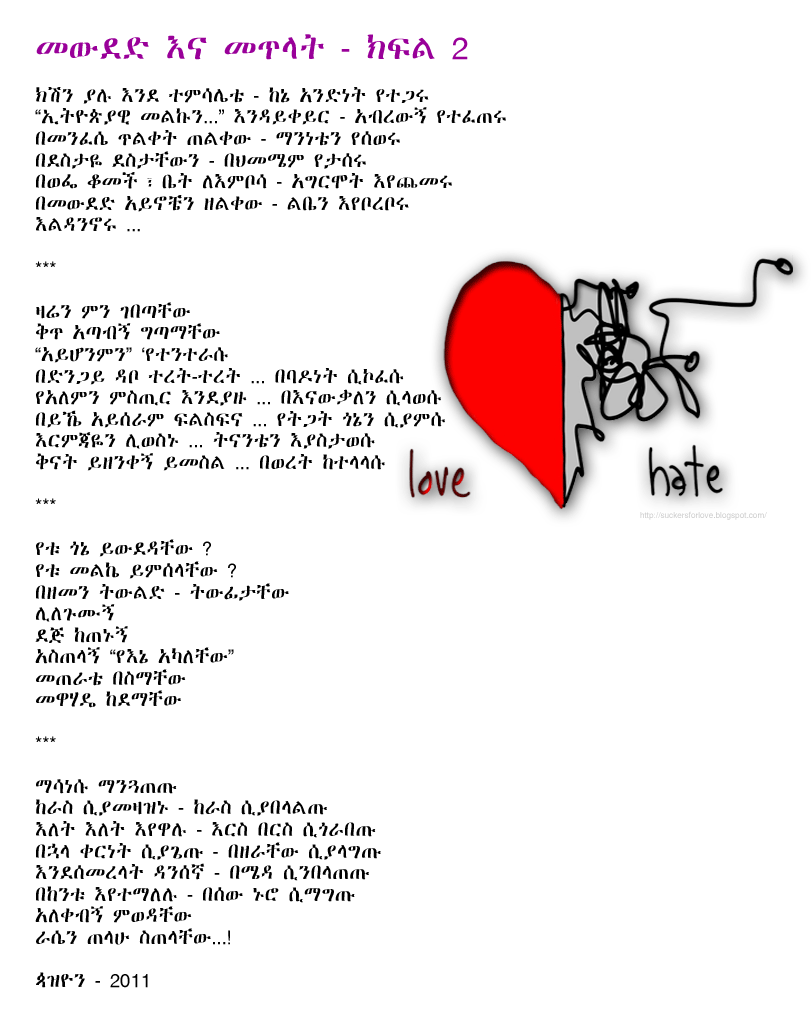 መውደድ እና መጥላት - ክፍል 2
ክሽን ያሉ እንደ ተምሳሌቴ - ከኔ አንድነት የተጋሩ
“ኢትዮጵያዊ መልኩን...” እንዳይቀይር - አብረውኝ የተፈጠሩ
በመንፈሴ ጥልቀት ጠልቀው - ማንነቴን የሰወሩ
በደስታዬ ደስታቸውን - በህመሜም የታሰሩ
በወፌ ቆመች ፣ ቤት ለእምቦሳ - አግርሞት እየጨመሩ
በመውደድ አይኖቼን ዘልቀው - ልቤን እየቦረቦሩ
እልዳንኖሩ ...
***
ዛሬን ምን ገበጣቸው
ቅጥ አጣብኝ ግጣማቸው
“አይሆንምን” ‘የተንተራሱ
በድንጋይ ዳቦ ተረት-ተረት ... በባዶነት ሲኮፈሱ
የአለምን ምስጢር እንደያዙ ... በእናውቃለን ሲላወሱ
በይኼ አይሰራም ፍልስፍና ... የትጋት ጎኔን ሲያምሱ
እርምጃዬን ሊወስኑ ... ትናንቴን እያስታወሱ
ቅናት ይዘንቀኝ ይመስል ... በወረት ከተላላሱ
love
hate
http://suckersforlove.blogspot.com/
***
የቱ ጎኔ ይውደዳቸው ?
የቱ መልኬ ይምሰላቸው ?
በዘመን ትውልድ - ትውፊታቸው
ሊለጉሙኝ
ደጅ ከጠኑኝ
አስጠላኝ “የእኔ አካለቸው”
መጠራቴ በስማቸው
መዋሃዴ ከደማቸው
***
ማሳነሱ ማንጓጠጡ
ከራስ ሲያመዛዝኑ - ከራስ ሲያበላልጡ
እለት እለት እየዋሉ - እርስ በርስ ሲጎራበጡ
በኋላ ቀርነት ሲያጌጡ - በዘራቸው ሲያላግጡ
እንደሰመረላት ዳንሰኛ - በሜዳ ሲንበላጠጡ
በከንቱ እየተማለሉ - በሰው ኑሮ ሲማግጡ
አለቀብኝ ምወዳቸው
ራሴን ጠላሁ ስጠላቸው...!
ጳዝዮን - 2011